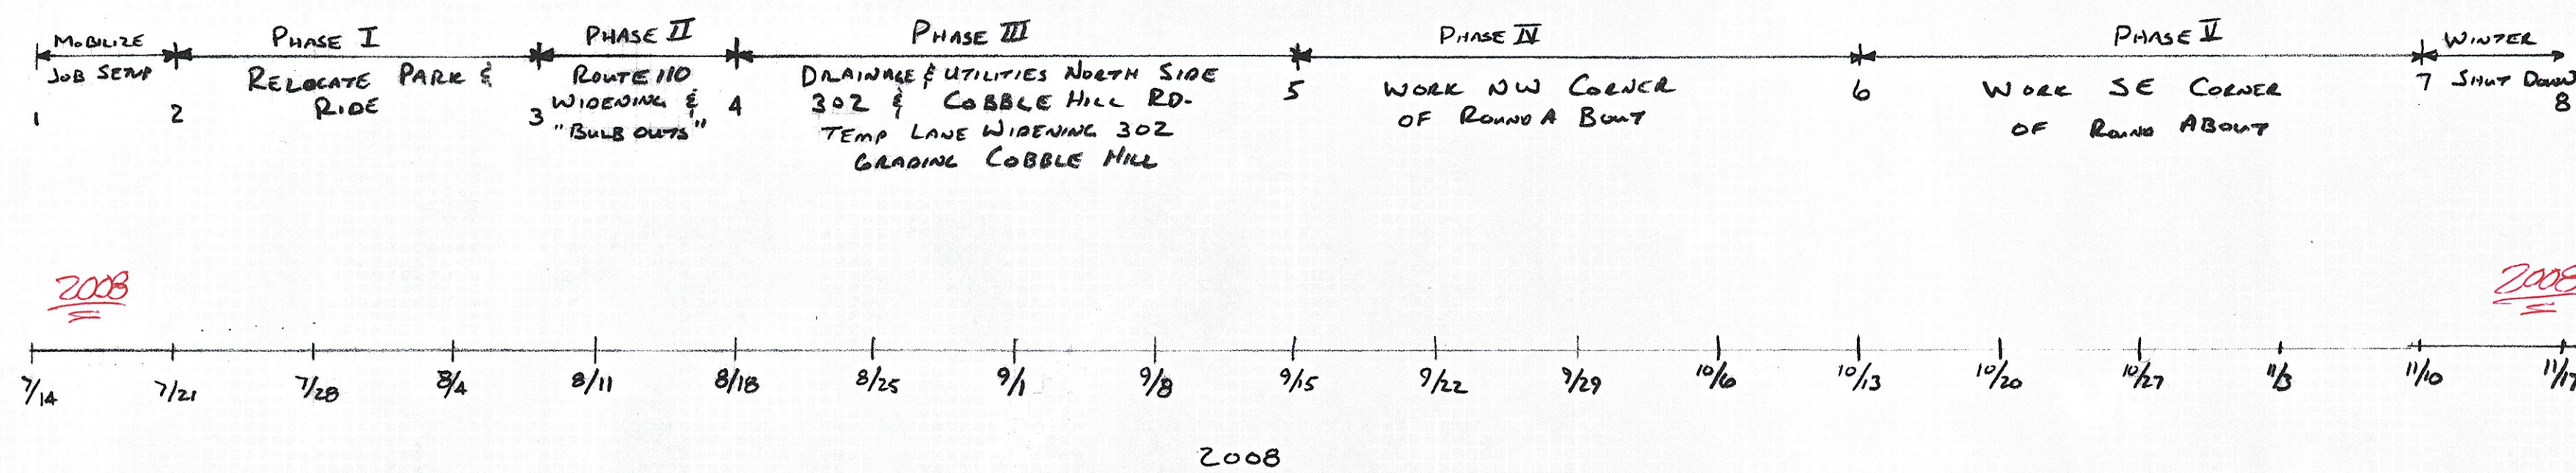 MOBILIZE
JOB SETUP
PHASE I
RELOCATE PARK &
RIDE
PHASE II
ROUTE 110
WIDENING &
"BULB OUTS"
PHASE III
DRAINAGE & UTILITIES NORTH SIDE
302 & COBBLE HILL RD.
TEMP LANE WIDENING 302
GRADING COBBLE HILL
PHASE IV
WORK NW CORNER
OF ROUND A BOUT
PHASE V
WORK SE CORNER
OF ROUND ABOUT
WINTER
SHUT DOWN
1 2 3 4 5 6 7 8
2008 2008
7/14 7/21 7/28 8/4 8/11 8/18 8/25 9/1 9/8 9/15 9/22 9/29 10/6 10/13 10/20 10/27 11/3 11/10 11/17
2008